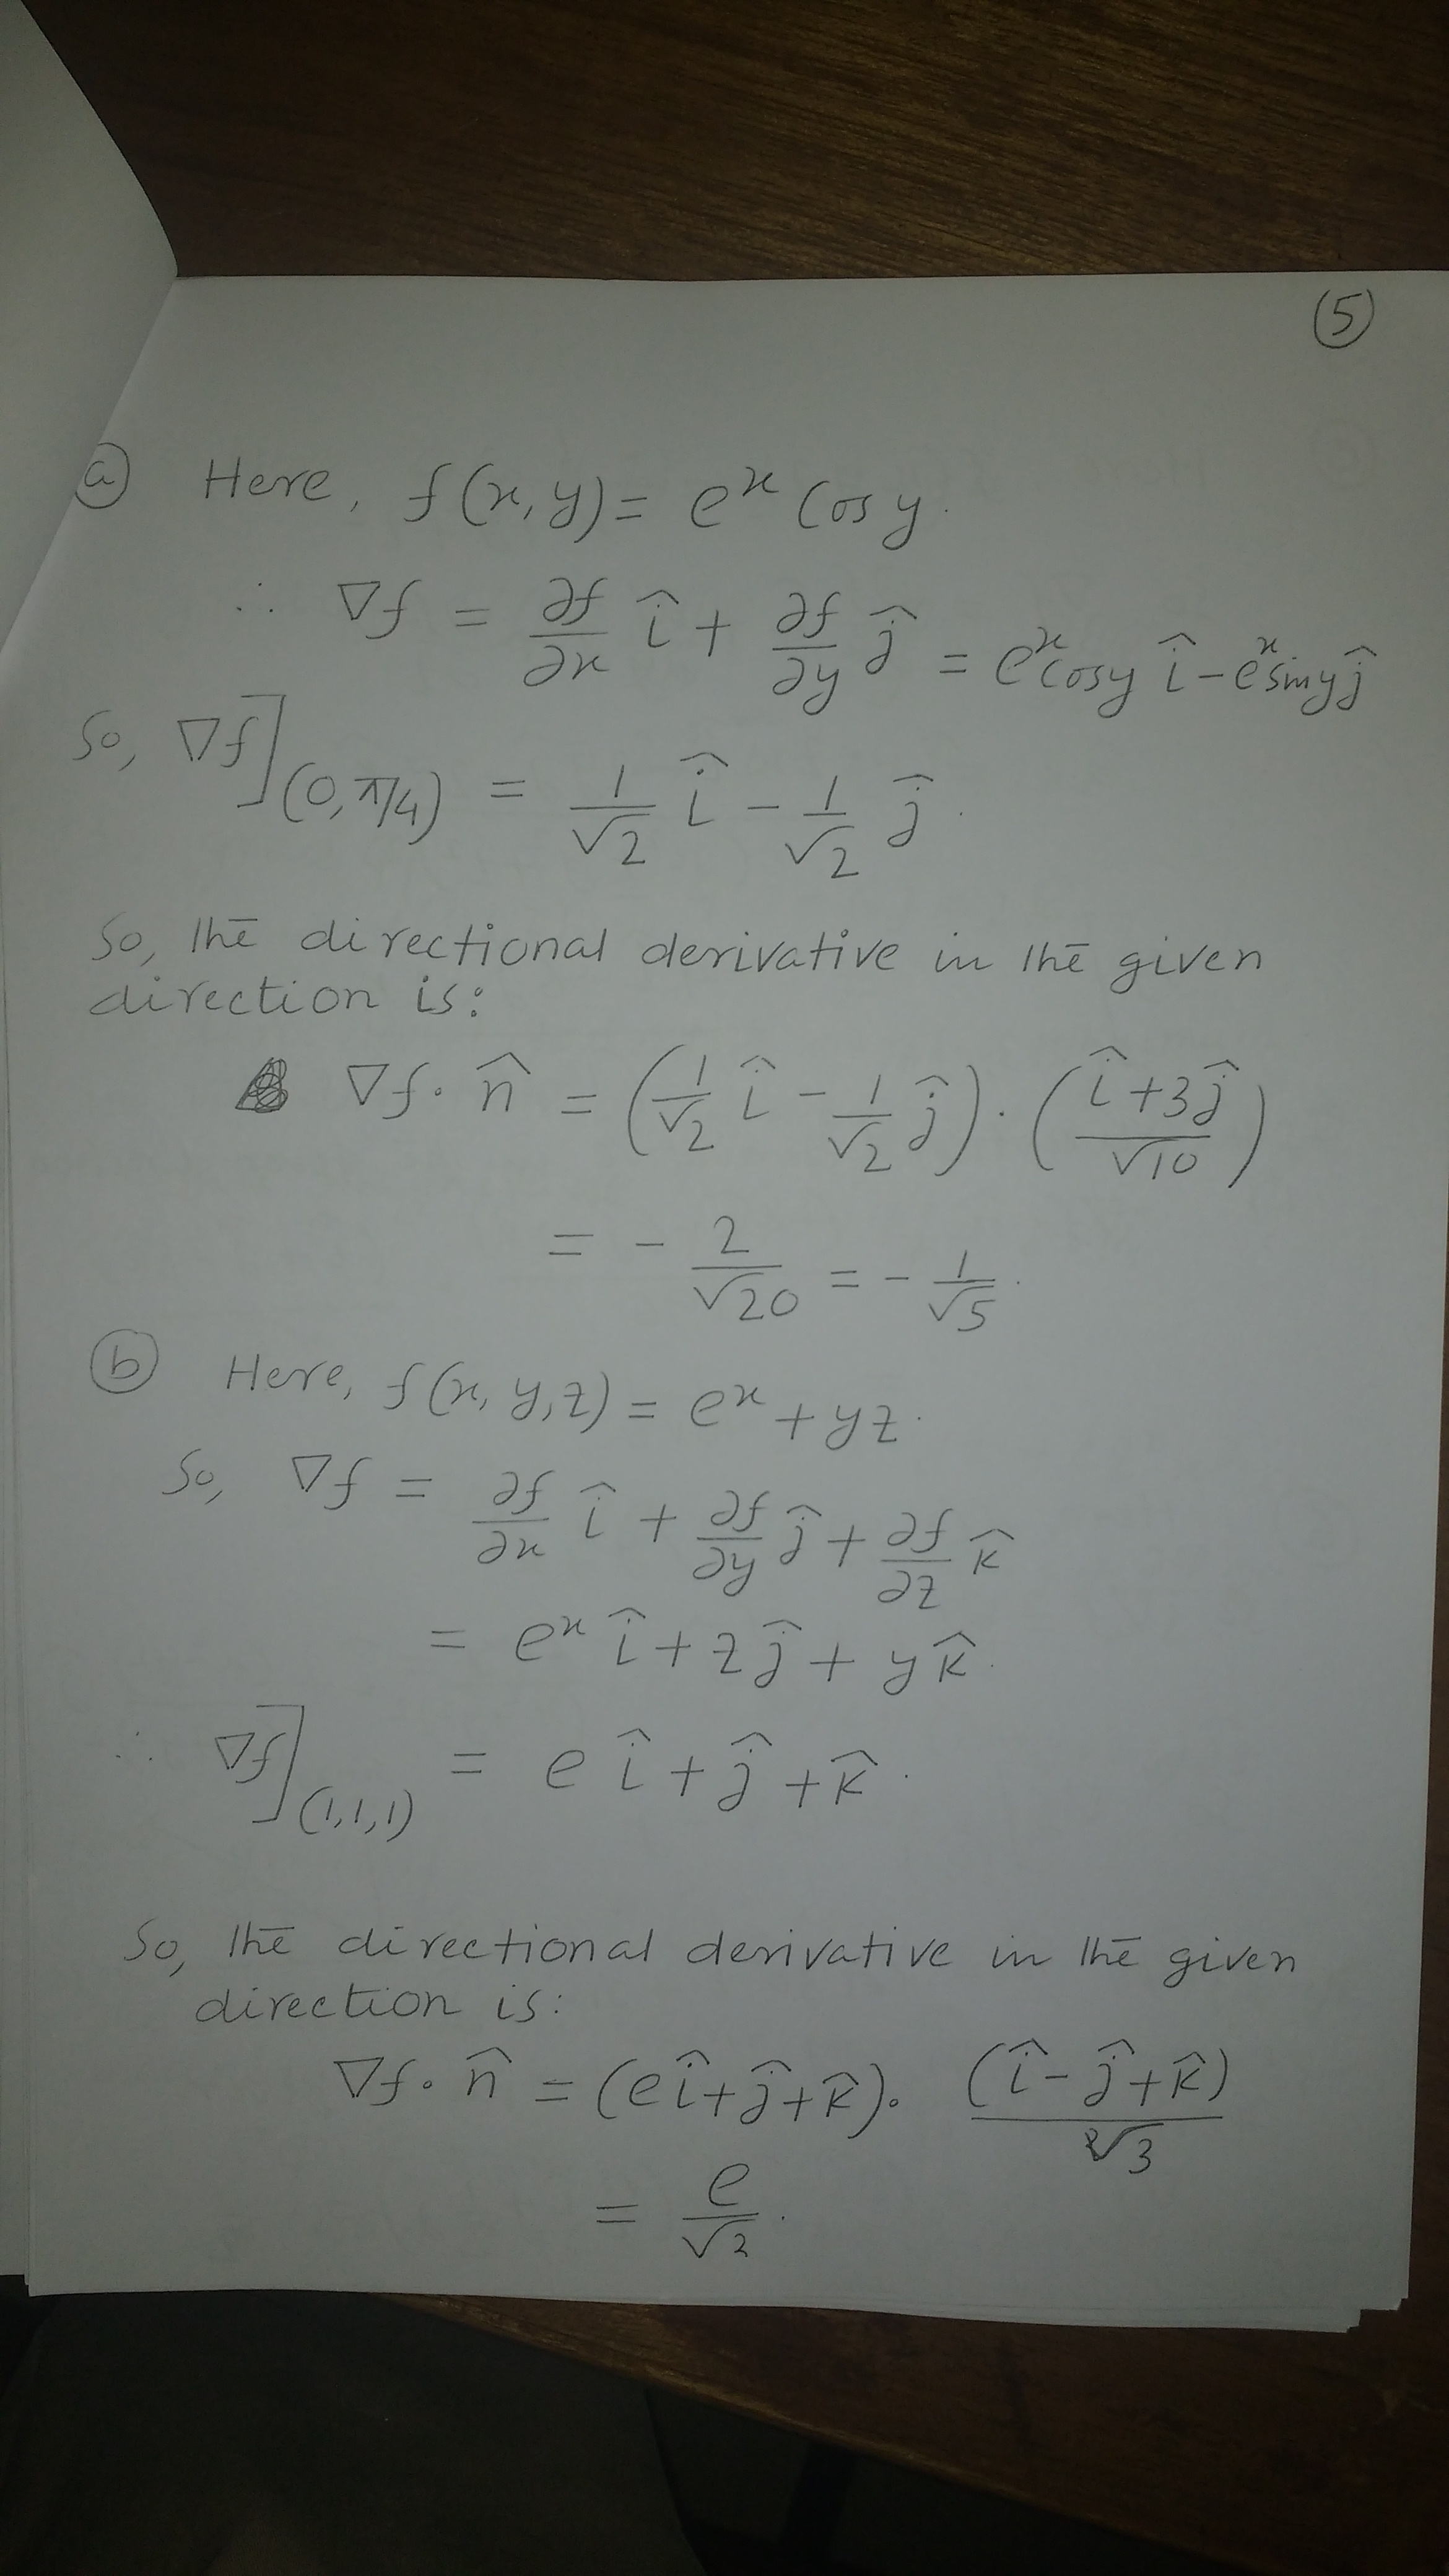 (5)
(a) Here, f(x,y) = e^x Cos y.
∴ ∇f = ∂f/∂x î + ∂f/∂y ĵ = e^x cosy î - e^x siny ĵ
So, ∇f](0,π/4) = 1/√2 î - 1/√2 ĵ.
So, the directional derivative in the given
direction is:
∇f · n̂ = (1/√2 î - 1/√2 ĵ) · (î+3ĵ / √10)
= - 2/√20 = - 1/√5.
(b) Here, f(x,y,z) = e^x + yz.
So, ∇f = ∂f/∂x î + ∂f/∂y ĵ + ∂f/∂z k̂
= e^x î + z ĵ + y k̂.
∴ ∇f](1,1,1) = e î + ĵ + k̂.
So, the directional derivative in the given
direction is:
∇f · n̂ = (eî+ĵ+k̂) · (î-ĵ+k̂) / √3
= e/√2.